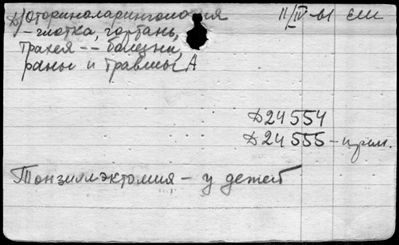 Д) Оториноларингология II/IV-61 ЕШ
- глотка, гортань,
трахея -- болезни,
раны и травмы А
Д24554
Д24555 - прим.
Тонзиллэктомия - у детей